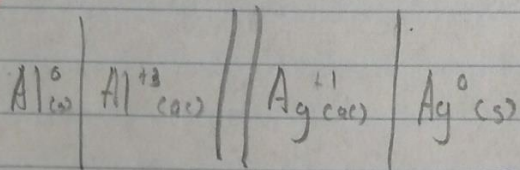 Al⁰(s) | Al⁺³(ac) || Ag⁺¹(ac) | Ag⁰(s)